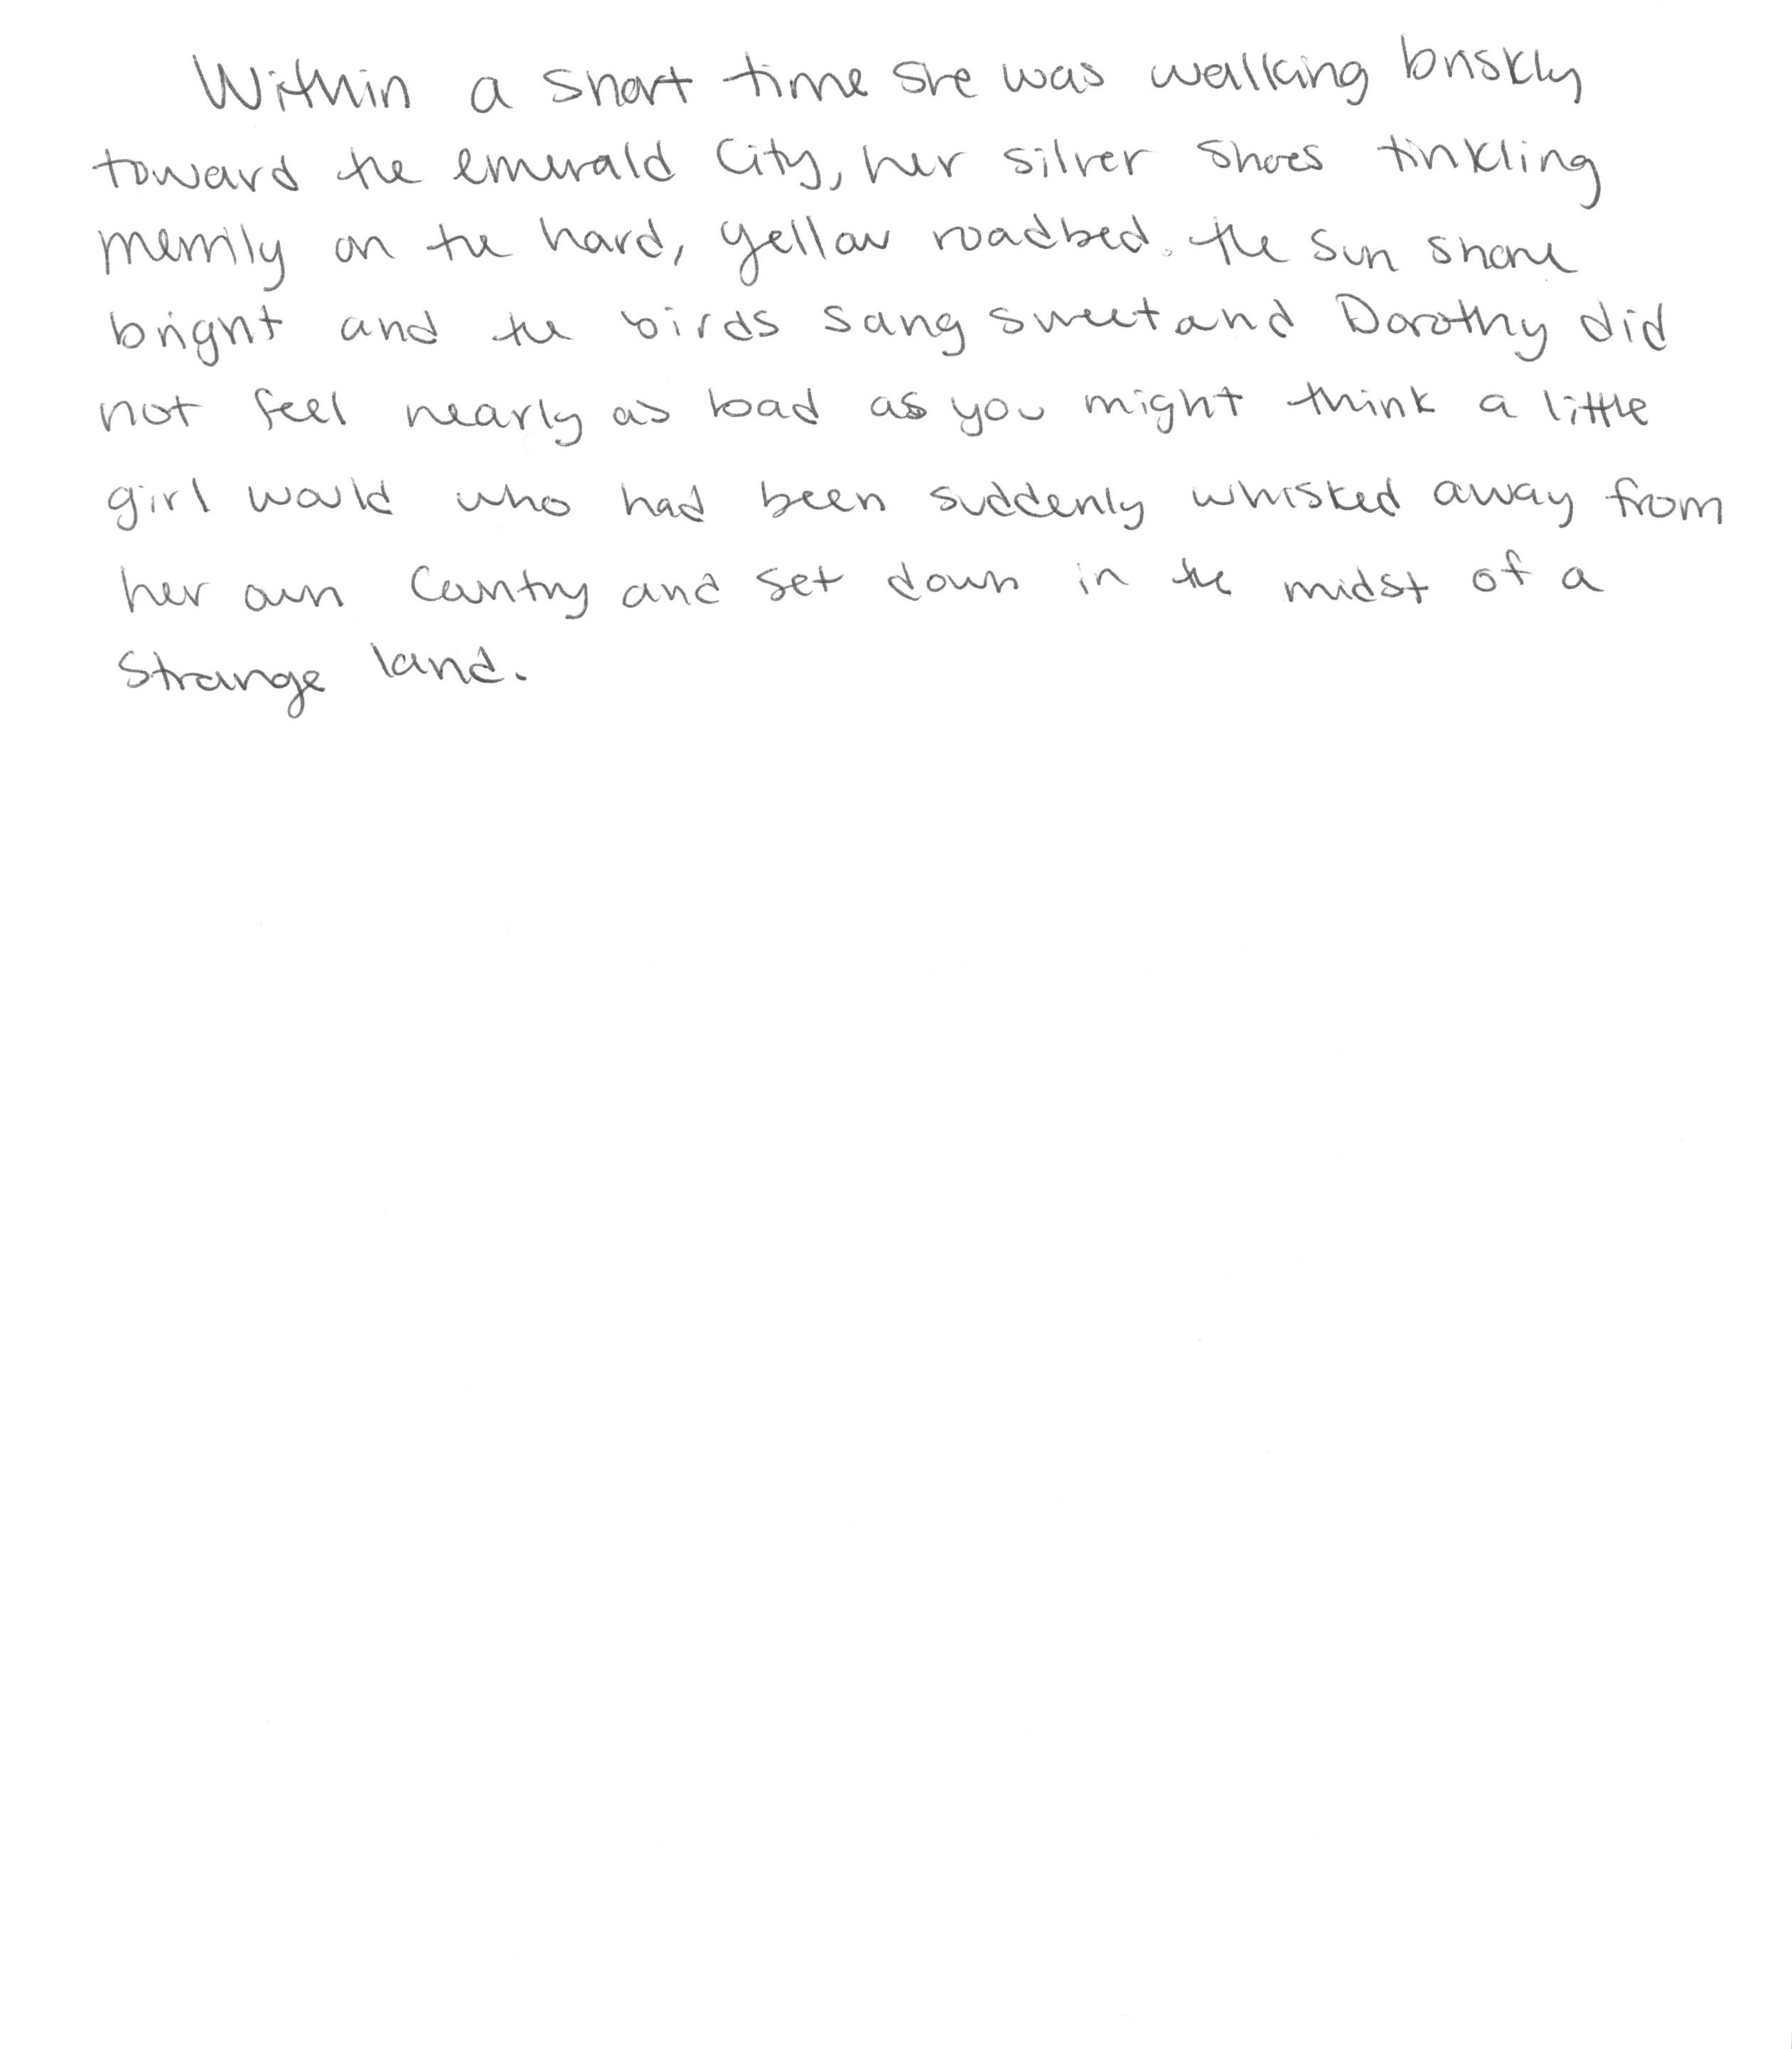 Within a short time she was walking briskly
toward the emerald City, her silver shoes tinkling
merrily on the hard, yellow roadbed. the sun shone
bright and the birds sang sweet and Dorothy did
not feel nearly as bad as you might think a little
girl would who had been suddenly whisked away from
her own Country and set down in the midst of a
strange land.